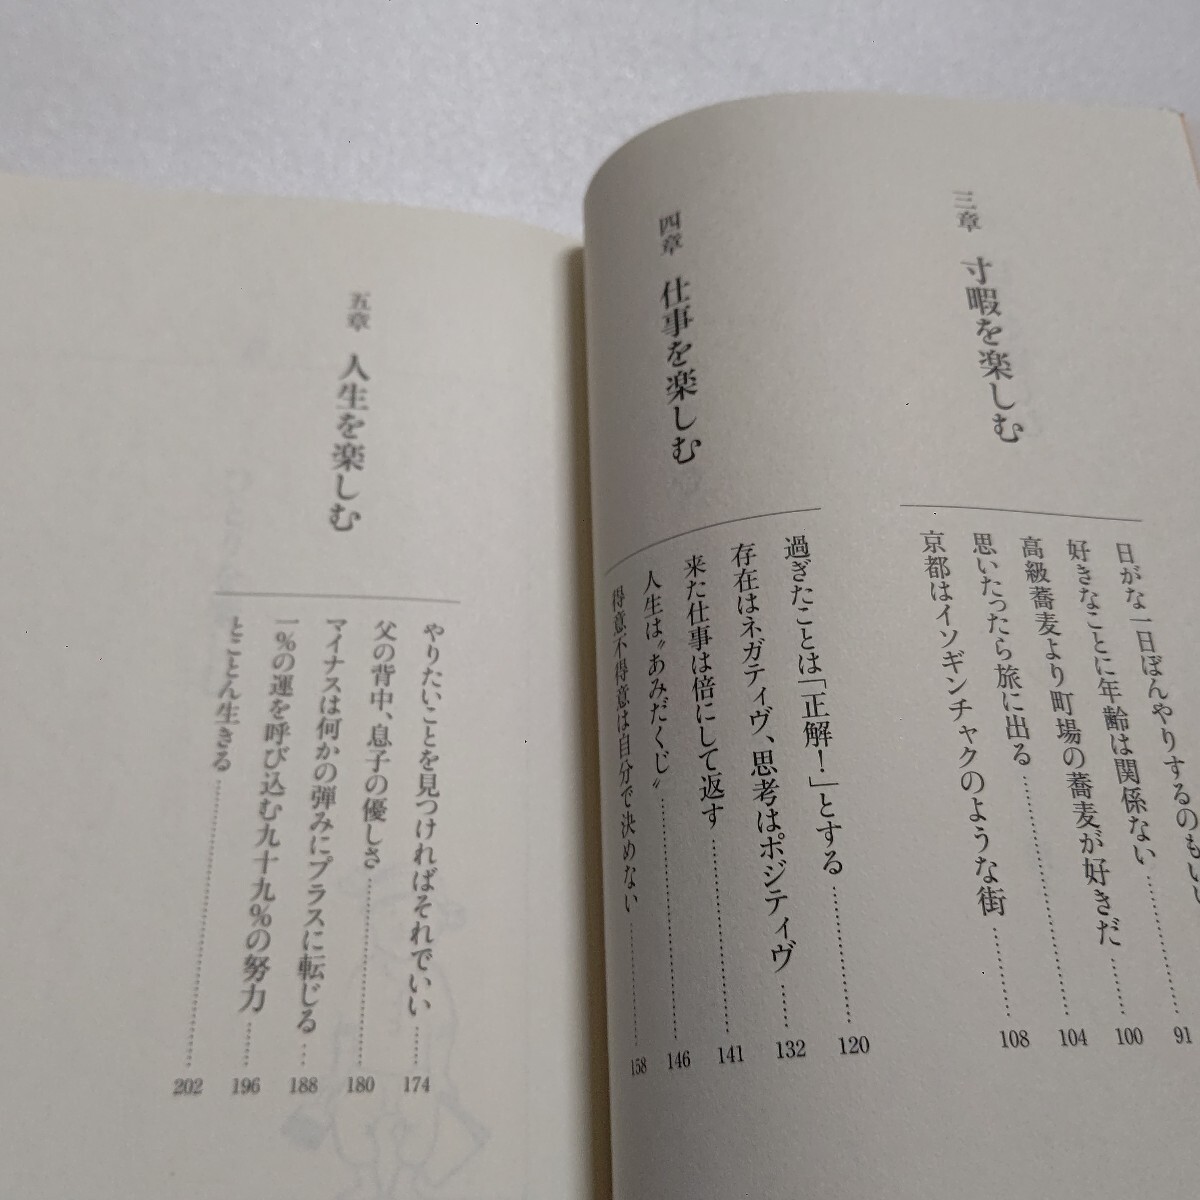 三章 寸暇を楽しむ
日がな一日ぼんやりするのもいい 91
好きなことに年齢は関係ない 100
高級蕎麦より町場の蕎麦が好きだ 104
思いたったら旅に出る 108
京都はイソギンチャクのような街
四章 仕事を楽しむ
過ぎたことは「正解!」とする 120
存在はネガティヴ、思考はポジティヴ 132
来た仕事は倍にして返す 141
人生は〝あみだくじ〟 146
得意不得意は自分で決めない 158
五章 人生を楽しむ
やりたいことを見つければそれでいい 174
父の背中、息子の優しさ 180
マイナスは何かの弾みにプラスに転じる 188
一%の運を呼び込む九十九%の努力 196
とことん生きる 202